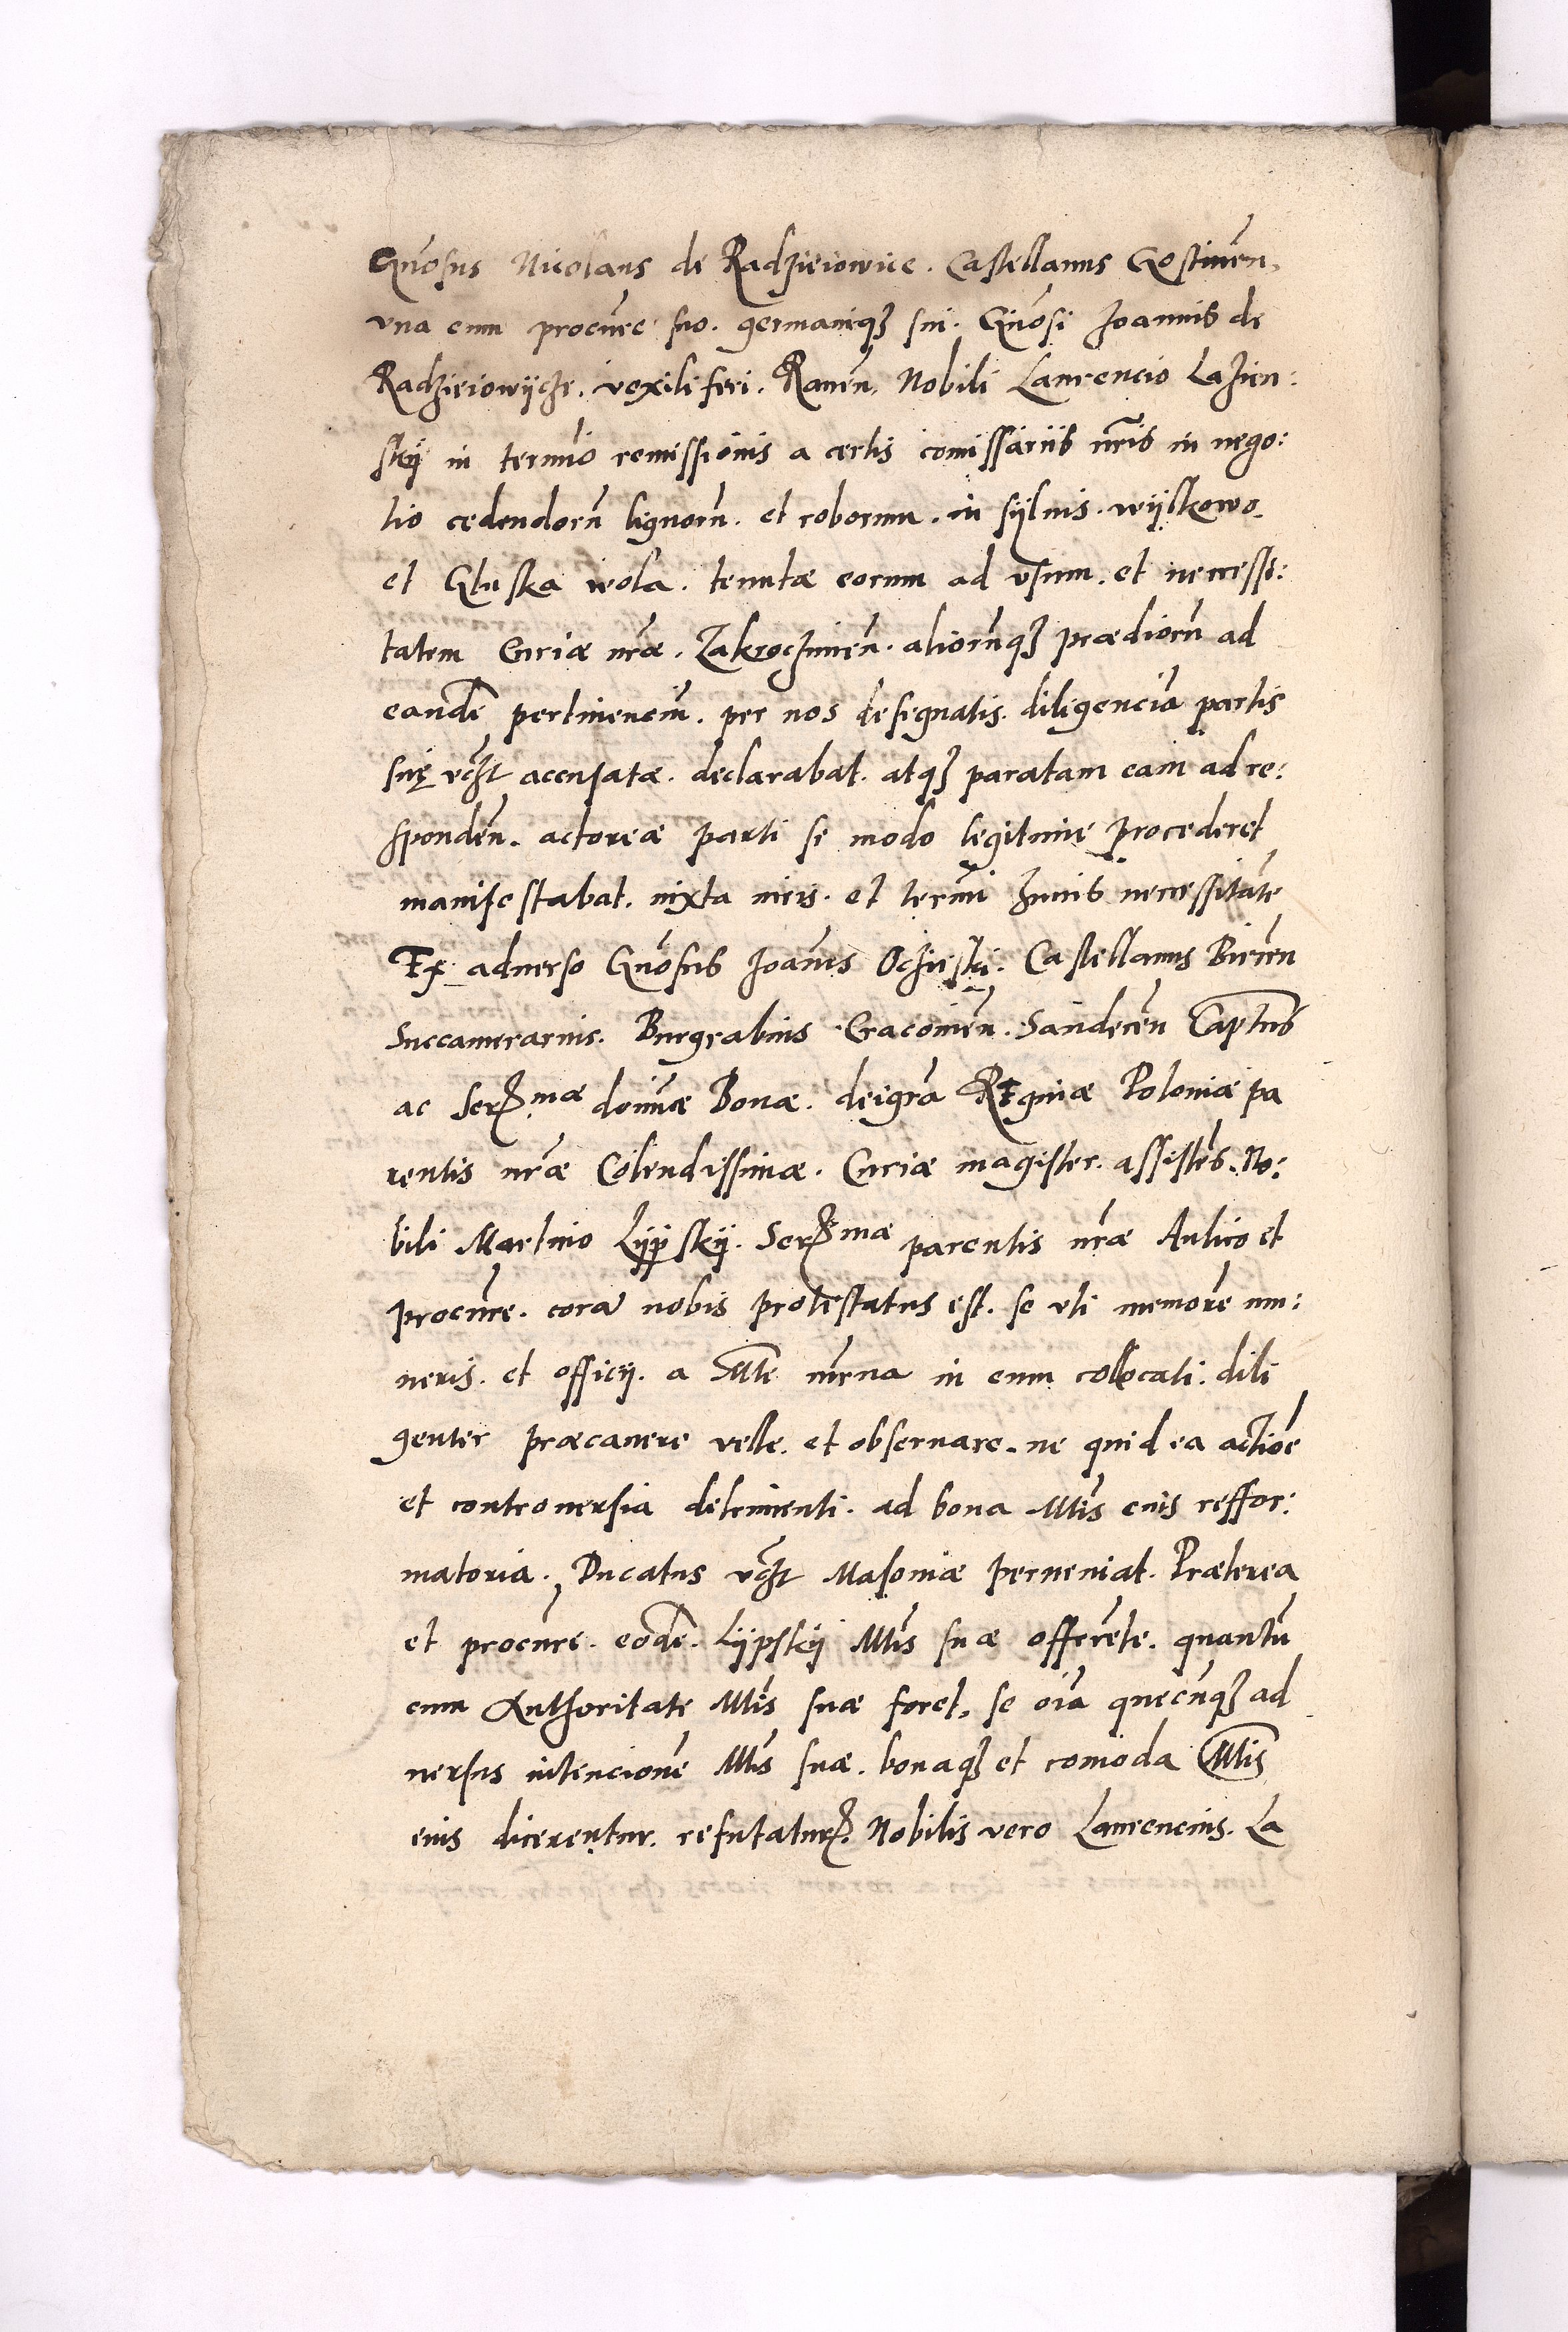 Gn̄osus Nicolaus de Radzieiowice. Castellanus Gostinen̄.
vna cum procūre suo. germaniqꝫ sui. Gn̄osi Joannis de
Radzieiowijcze. vexiliferi. Rauen̄. Nobili Laurencio Lazien:
skij in termīo remissionis a certis comīssariis nr̄is in nego:
tio cedendorū lignorū. et roborum. in sÿluis. wÿskowo.
et Gluska wola. tenutæ eorum ad vsum. et necessi:
tatem Curiæ nr̄æ. Zakroczimen̄. aliorūqꝫ prædiorū ad
eandē pertinenciū. per nos designatis. diligenciā partis
suę vc̄zt accusatæ. declarabat. atqꝫ paratam eam ad re:
sponden̄. actoreæ parti si modo legitime procederet
manifestabat. iuxta iuris. et termīi huius necessitatē
Ex aduerso Gn̄osus Joan̄es Oczieski. Castellanus Biecen̄
Succamerarius. Burgrabius Cracouien̄. Sandecen̄ Capt̄us
ac Ser.mæ domīnæ Bonæ. dei gr̄a Reginæ Poloniæ pa
rentis nr̄æ Colendissimæ. Curiæ magister. assistēte. No:
bili Martino Lÿpskij. Ser.mæ parentis nr̄æ Aulico et
procūre. corā nobis protestatus est. se vti memorē mu:
neris. et officij. a Mte nurua in eum collocati. dili
genter præcauere velle. et obseruare. ne quid ea actiōe
et controuersia detrimenti. ad bona Mtis eius reffor:
matoria. Ducatus vc̄zt Masoniæ perueniat. Præterea
et procūre. eodē. Lÿpskij Mtis suæ offerēte. quantū
cum Authoritate Mtis suæ foret. se oīa quecūqꝫ ad
uersus intencionē Mtis suæ. bonaqꝫ et comōda Mtis
eius dicerentur. refutatur. Nobilis vero Laurencius. La